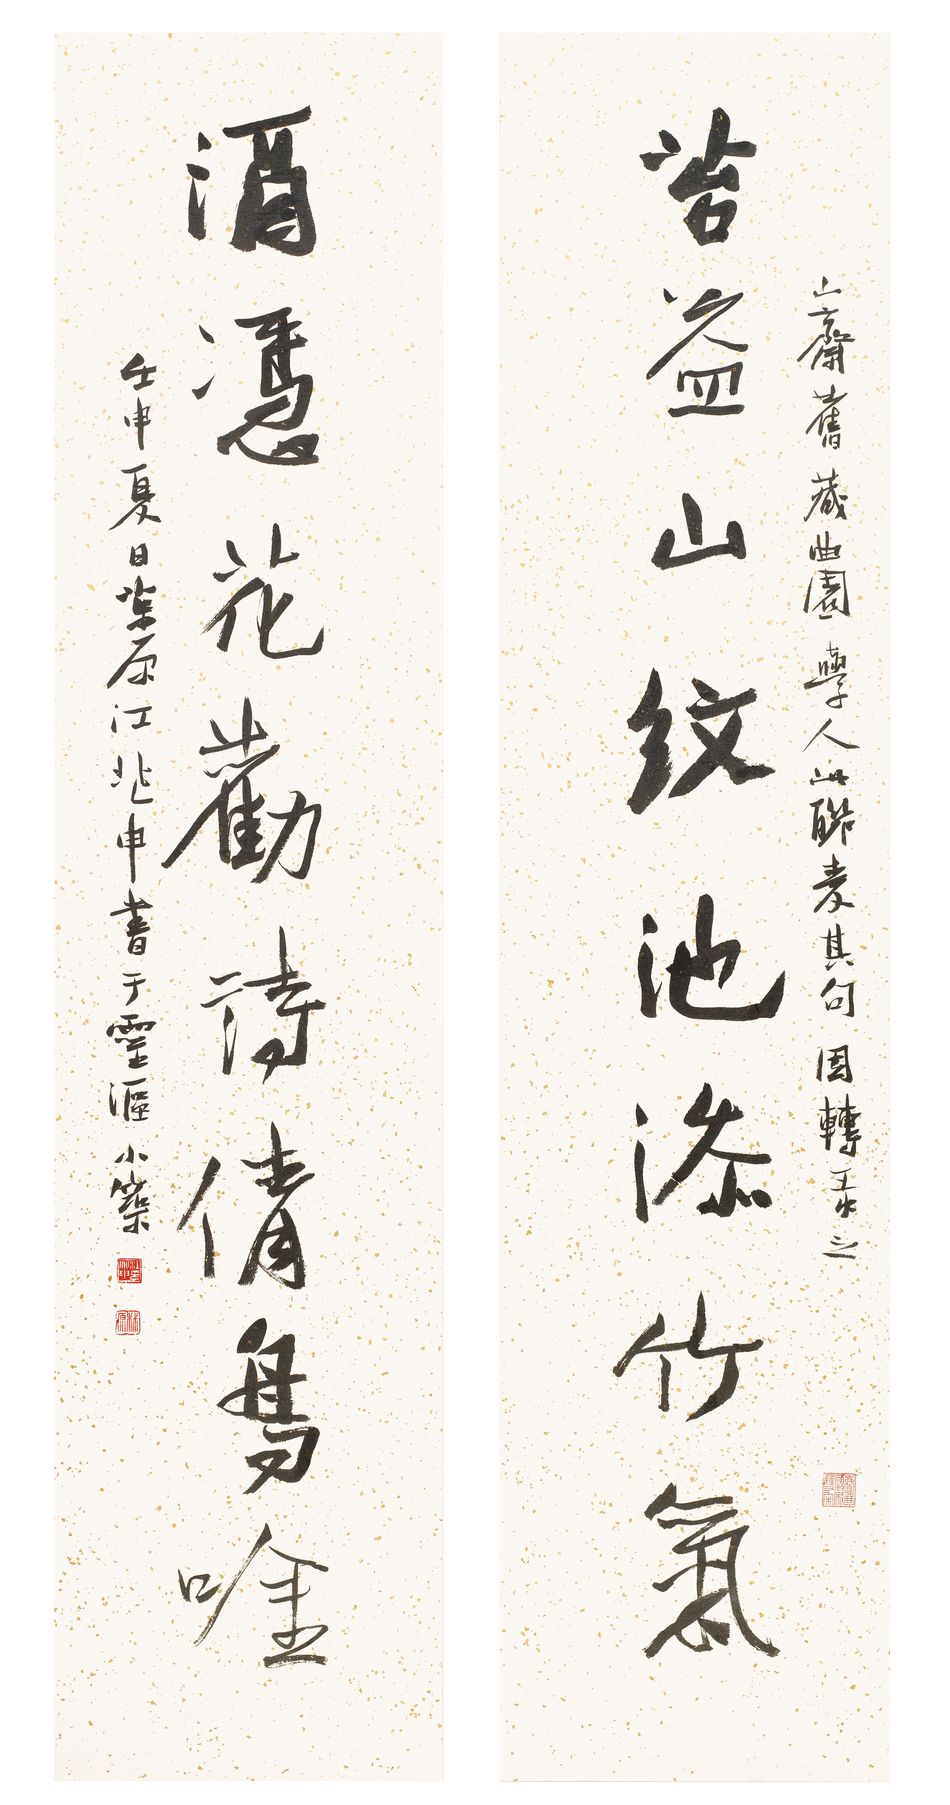 苔益山紋池添竹氣
山齋舊藏曲園學人此聯愛其句因轉之
酒憑花勸詩倩鳥唫
壬申夏日茮原江兆申書于靈漚小築